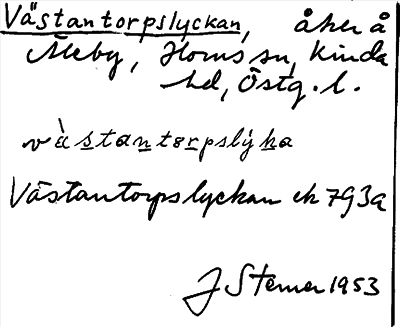 Västantorpslyckan, åker å
Åleby, Horns sn, Kinda
hd, Östg. l.
vàstantorpslýka
Västantorpslyckan ek 793a
J Sterner 1953